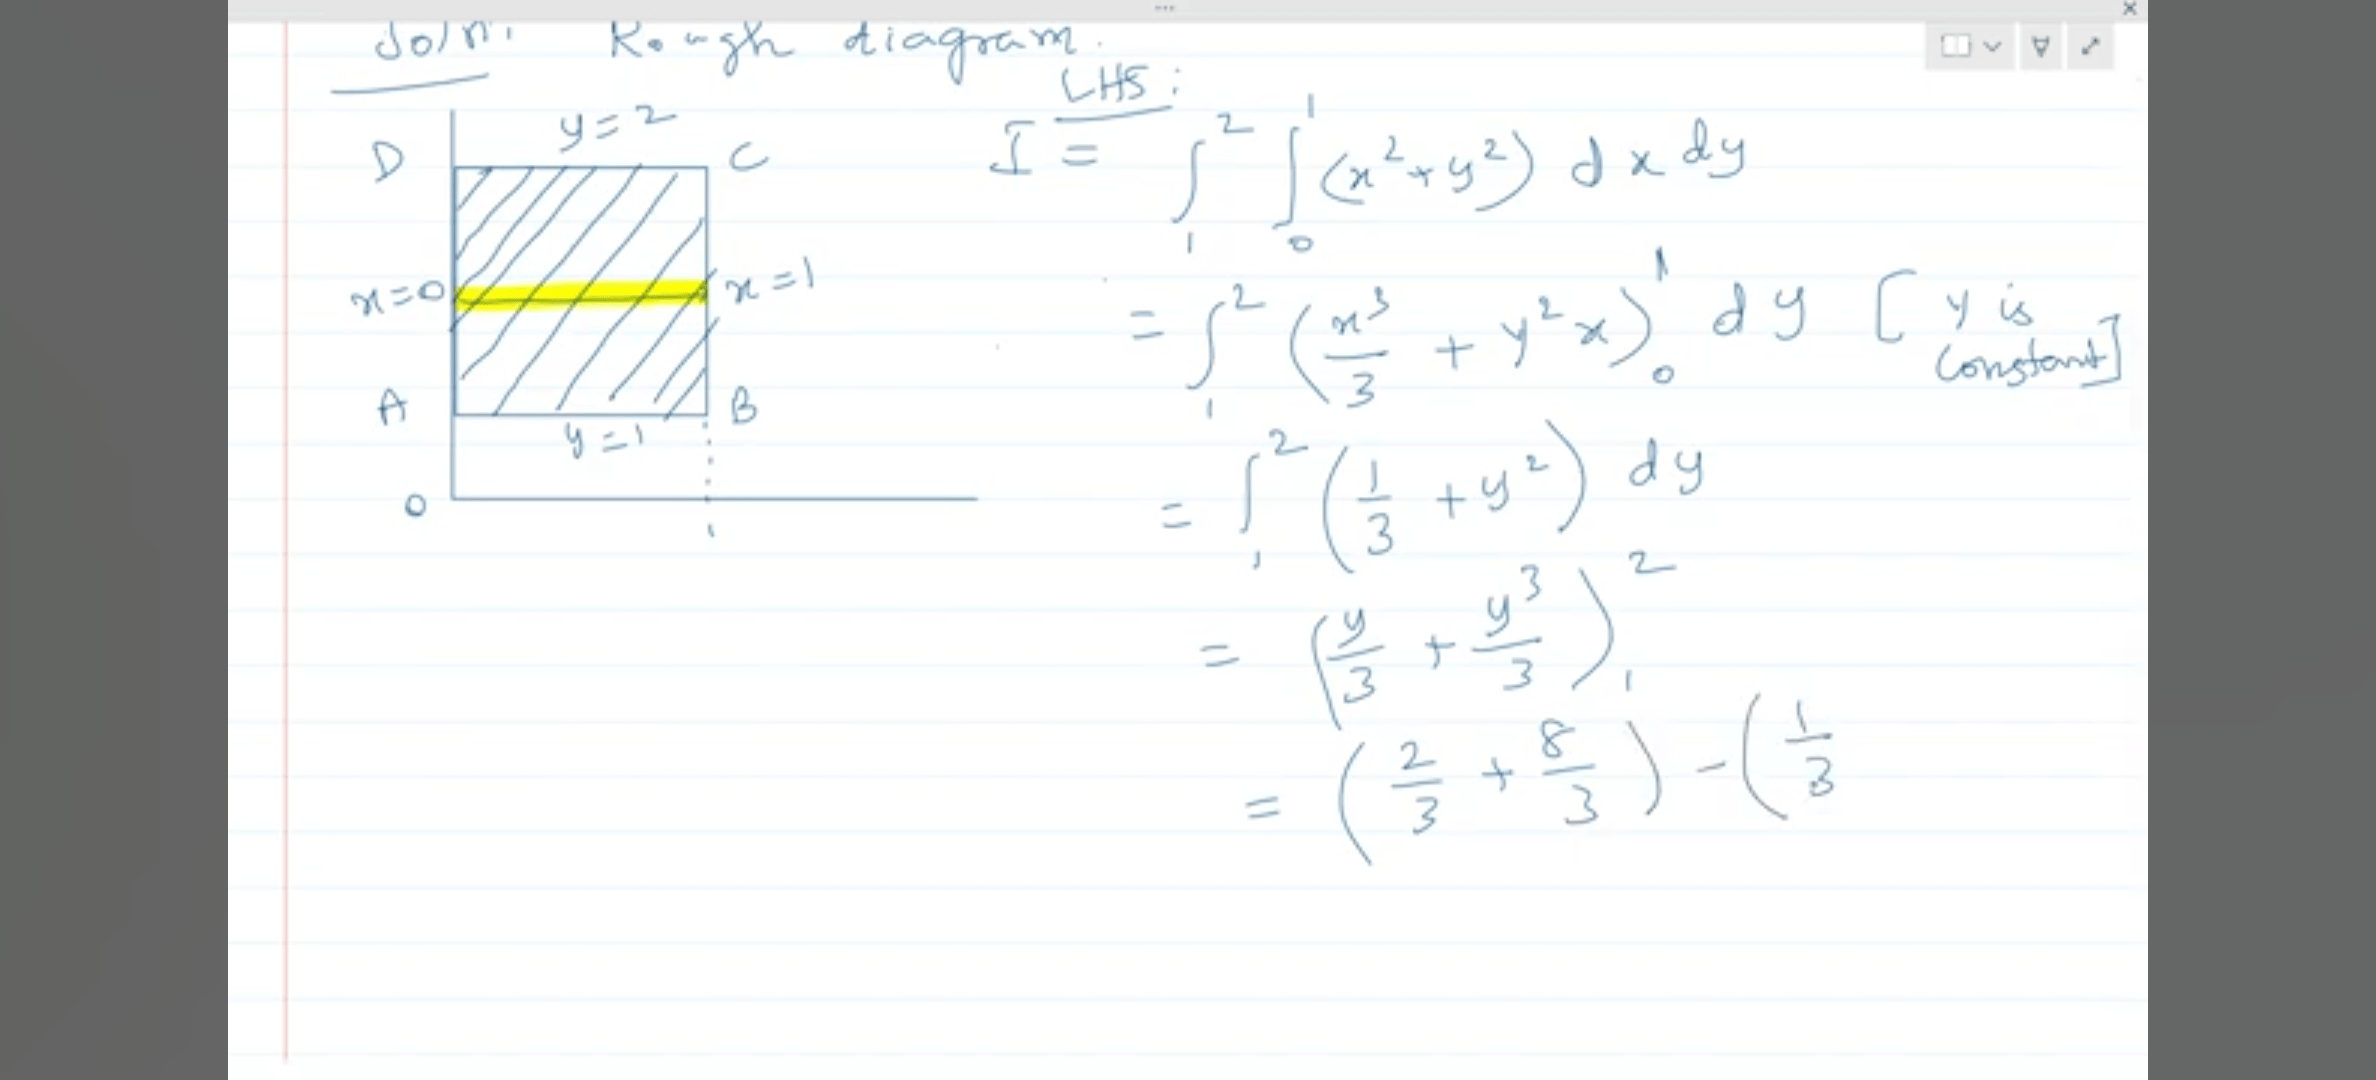 Soln. Rough diagram.
y = 2
D C
x=0 x=1
A B
y=1
0
1
LHS:
I = ∫₁² ∫₀¹ (x²+y²) dx dy
= ∫₁² (x³/3 + y²x)₀¹ dy [y is constant]
= ∫₁² (1/3 + y²) dy
= (y/3 + y³/3)₁²
= (2/3 + 8/3) - (1/3